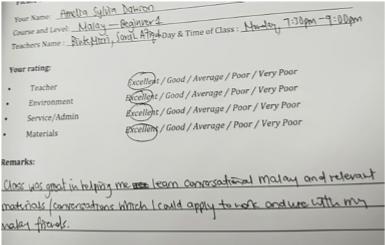 Your Name: Amelia Sylvia Dawson
Course and Level: Malay - Beginner 1
Teachers Name: Day & Time of Class: Monday, 7:30pm - 9:00pm
Your rating:
• Teacher Excellent / Good / Average / Poor / Very Poor
• Environment Excellent / Good / Average / Poor / Very Poor
• Service/Admin Excellent / Good / Average / Poor / Very Poor
• Materials Excellent / Good / Average / Poor / Very Poor
Remarks:
Class was great in helping me learn conversational malay and relevant
materials/conversations which I could apply to work and use with my
malay friends.